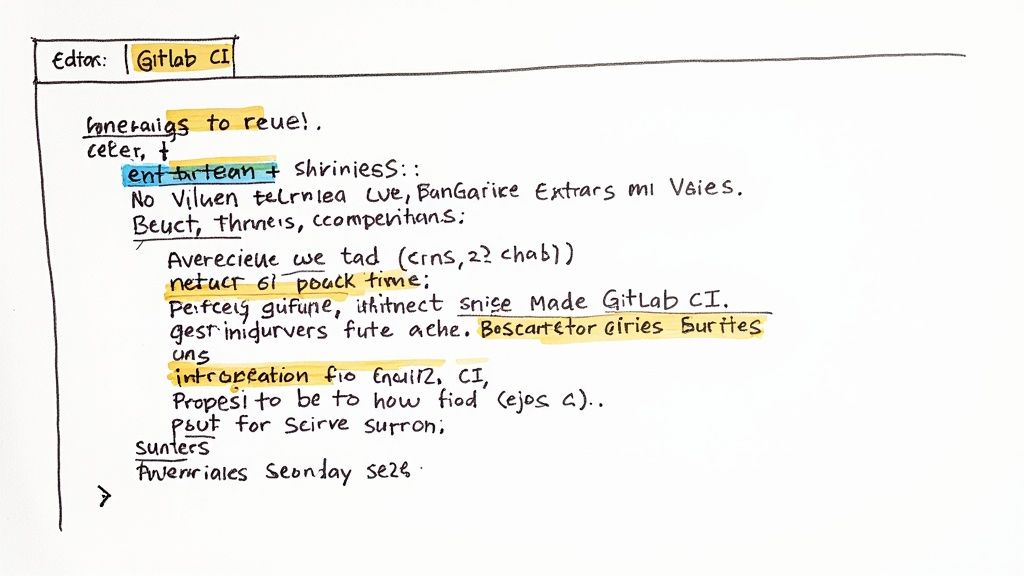 Edtor: GitLab CI
to reue!.
ceter, t
ent tartean + shriniess::
No Viluen telrnlea Lve, BanGarice Extrars mi Vsies.
Beuct, Thrneis, ccomperitians;
Averecieue we tad (crns, 2? chab))
netucr 61 pouck time;
Perfceig gufune, ihitnect snice Made GitLab CI.
gest inidurvers fute aehe. Boscartetor ciries Surites
uns
intropeation fio CI,
Propesi to be to how fiod (ejos a)..
Psut for Scirve surron;
sunters
Seonday se28.
>